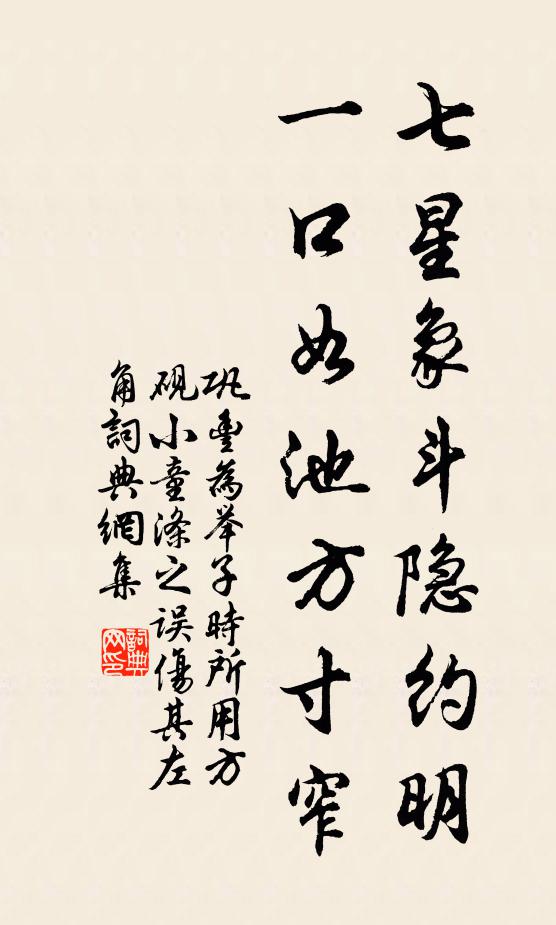 七星象斗隐约明
一口如池方寸窄
巩豊為举子時所用方
砚小童滌之误傷其左
角詞典網集
詞典网印